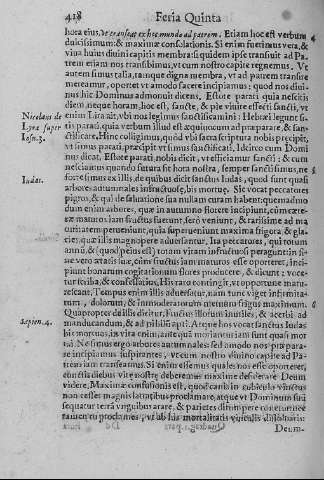 418 Feria Quinta
hora eius, vt transeat ex hoc mundo ad patrem. Etiam hoc est verbum
dulcissimum: & maximæ consolationis. Si enim fuerimus vera, &
viua huius diuini capitis membra: siquidem ipse transiuit ad Pa-
trem etiam nos transibimus, vt cum nostro capite regnemus. Vt
autem simus talia, tamque digna membra, vt ad patrem transire
mereamur, oportet vt amodo facere incipiamus; quod nos diui-
nus hic Dominus admonuit dicens, Estote parati quia nescitis
diem, neque horam, hoc est, sancte, & pie viuite effecti sancti, vt
Nicolaus de
Lyra super
Iosu. 3.
enim Lira ait, vbi nos legimus sanctificamini: Hebræi legunt si-
tis parati. quia verbum illud est æquiuocum ad præparare, & san-
ctificare, Hinc colligimus, quod vbi sacra scriptura nobis præcipit,
vt simus parati, præcipit vt simus sanctificati, Idcirco cum Domi-
nus dicat, Estote parati, nobis dicit, vt efficiamur sancti: & cum
nesciamus quando futura sit hora nostra, semper sancti simus, ne
Iudas.
forte simus ex illis, de quibus dicit sanctus Iudas, quod sunt quasi
arbores autumnales infructuosæ, bis mortuæ. Sic vocat peccatores
pigros, & qui de salutatione sua nullam curam habent: quemadmo
dum enim arbores, quæ in autumno florere incipiunt,
maturo. iam fructus fuerunt, sero veniunt, & rarissime ad ma
turitatem perueniunt, quia superueniunt maxima frigora, & gla-
cies, quæ illis magnopere aduersantur, Ita peccatores, qui totum
annum, & (quod peius est) totam vitam infructuose peragunt in fi-
ne vero ætatis suæ, cum fructus iam maturos esse oporteret, inci-
piunt bonarum cogitationum flores producere, & dicunt: voce-
tur scriba, & confessarius, His raro contingit, vt opportune matu-
rescant, Tempus enim illis aduersatur, nam tunc viget infirmita-
tum, dolorum, & immoderatorum metuum frigus maximum.
Sapien. 4.
Quapropter de illis dicitur, Fructus illorum inutiles, & acerbi ad
manducandum, & ad nihilum apti: Atque hos vocat sanctus Iudas
bis mortuos, in vita enim, ante quam moriantur iam sunt quasi mor
tui. Ne simus ergo arbores autumnales: sed amodo nos præpara-
re incipiamus suspirantes, vt cum nostro diuino capite ad Pa-
trem iam transeamus, Si enim essemus quales nos esse oporteret,
cunctis diebus vitæ nostræ deberemus maxime desiderare Deum
videre, Maximæ confusionis est, quod canis in cubiculo vinctus
non cesset magnis latratibus proclamare, atque vt Dominum suum
sequatur terram vnguibus arare, & parietes disrumpere conetur: nec
tamen tu proclames, vt ab his mortalitatis vinculis dissoluaris:
Deum-